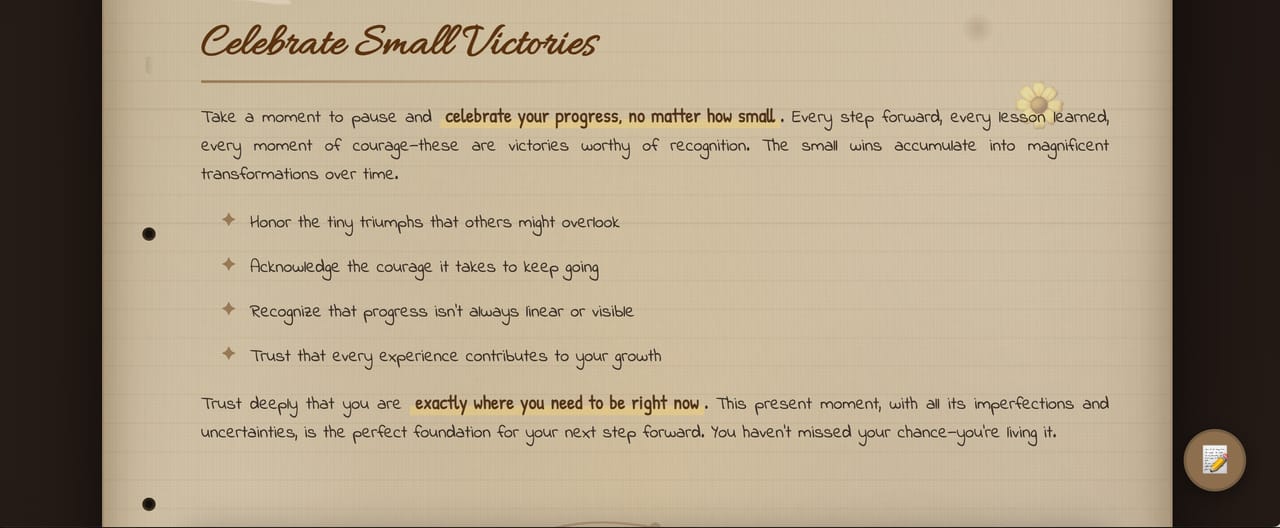 Celebrate Small Victories
Take a moment to pause and celebrate your progress, no matter how small. Every step forward, every lesson learned,
every moment of courage—these are victories worthy of recognition. The small wins accumulate into magnificent
transformations over time.
✦ Honor the tiny triumphs that others might overlook
✦ Acknowledge the courage it takes to keep going
✦ Recognize that progress isn't always linear or visible
✦ Trust that every experience contributes to your growth
Trust deeply that you are exactly where you need to be right now. This present moment, with all its imperfections and
uncertainties, is the perfect foundation for your next step forward. You haven't missed your chance—you're living it.